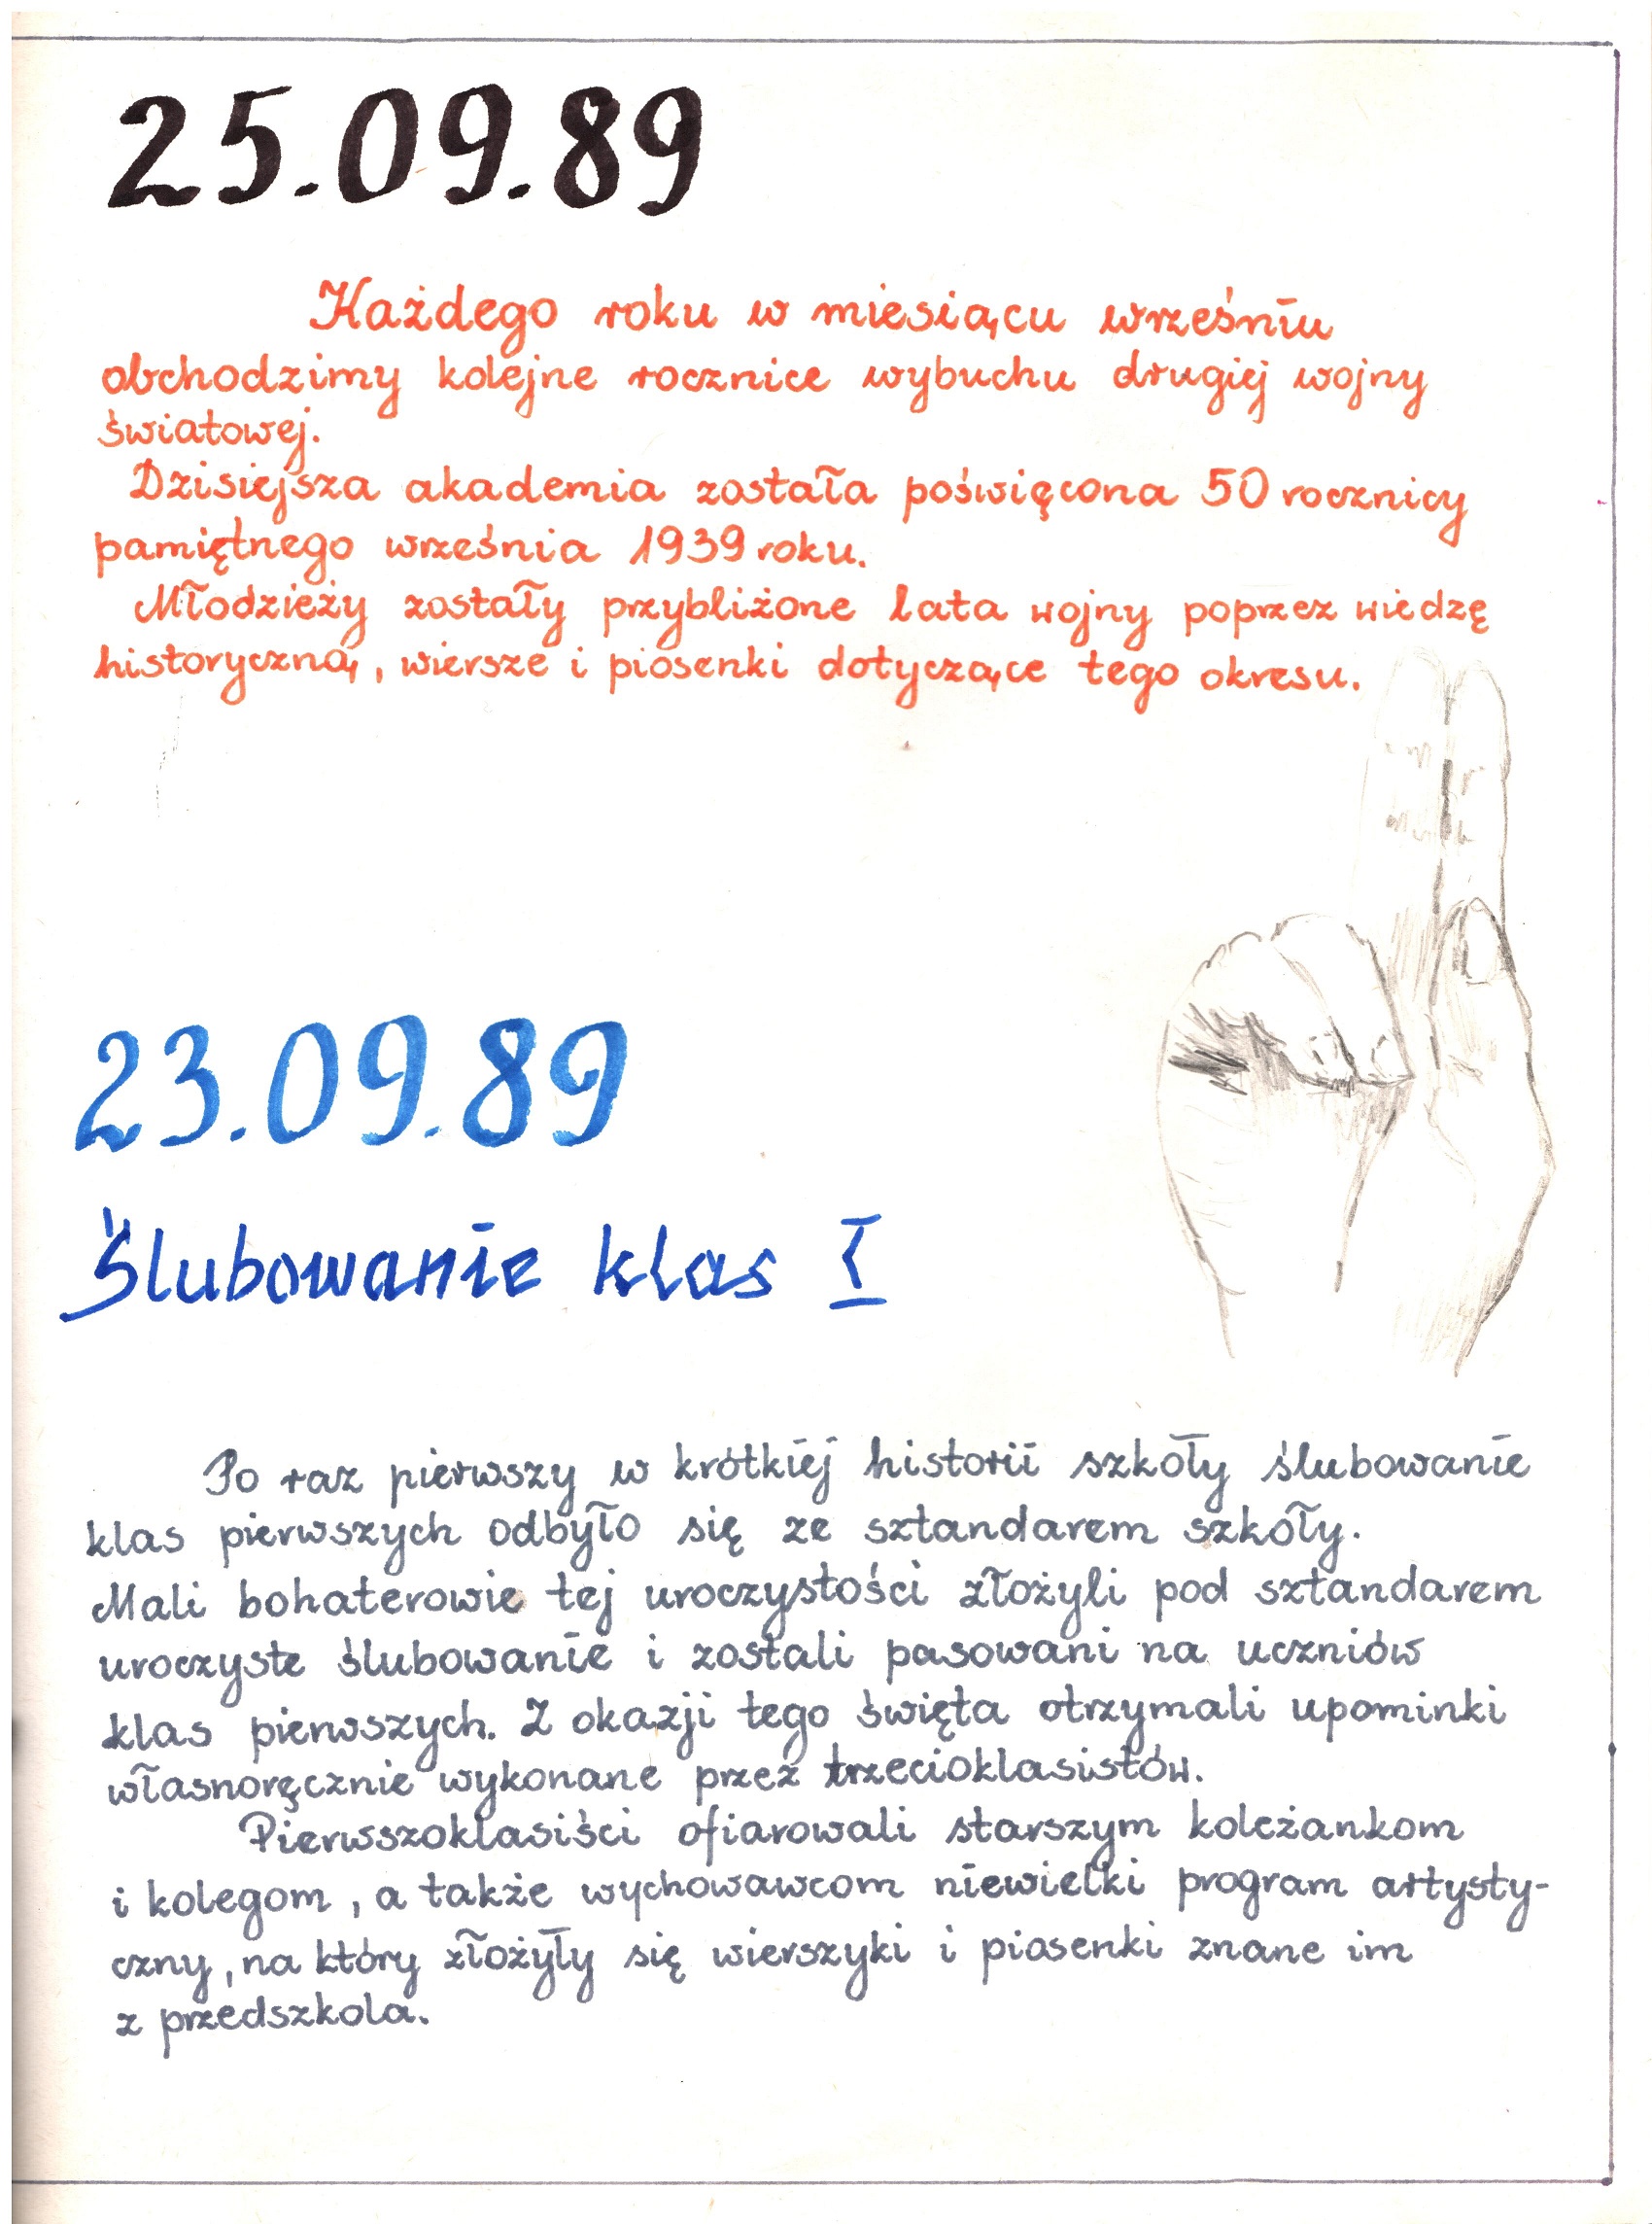 25.09.89
Każdego roku w miesiącu wrześniu
obchodzimy kolejne rocznice wybuchu drugiej wojny
światowej.
Dzisiejsza akademia została poświęcona 50 rocznicy
pamiętnego września 1939 roku.
Młodzieży zostały przybliżone lata wojny poprzez wiedzę
historyczną, wiersze i piosenki dotyczące tego okresu.
23.09.89
Ślubowanie klas I
Po raz pierwszy w krótkiej historii szkoły ślubowanie
klas pierwszych odbyło się ze sztandarem szkoły.
Mali bohaterowie tej uroczystości złożyli pod sztandarem
uroczyste ślubowanie i zostali pasowani na uczniów
klas pierwszych. Z okazji tego święta otrzymali upominki
własnoręcznie wykonane przez trzecioklasistów.
Pierwszoklasiści ofiarowali starszym koleżankom
i kolegom, a także wychowawcom niewielki program artysty-
czny, na który złożyły się wierszyki i piosenki znane im
z przedszkola.